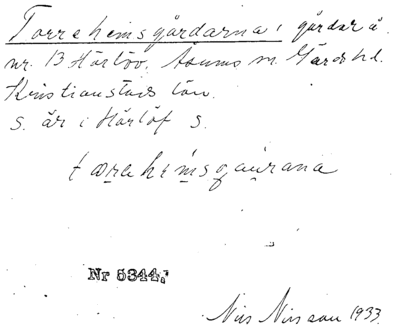 Torrehemsgårdarna i gårdar å
nr. 13 Hörlöv, Åsums sn. Gärds hd.
Kristianstads län.
s. är i Hörlöf s.
tɷrehemsgaurana
Nr 5344.
Nils Nilsson 1933.